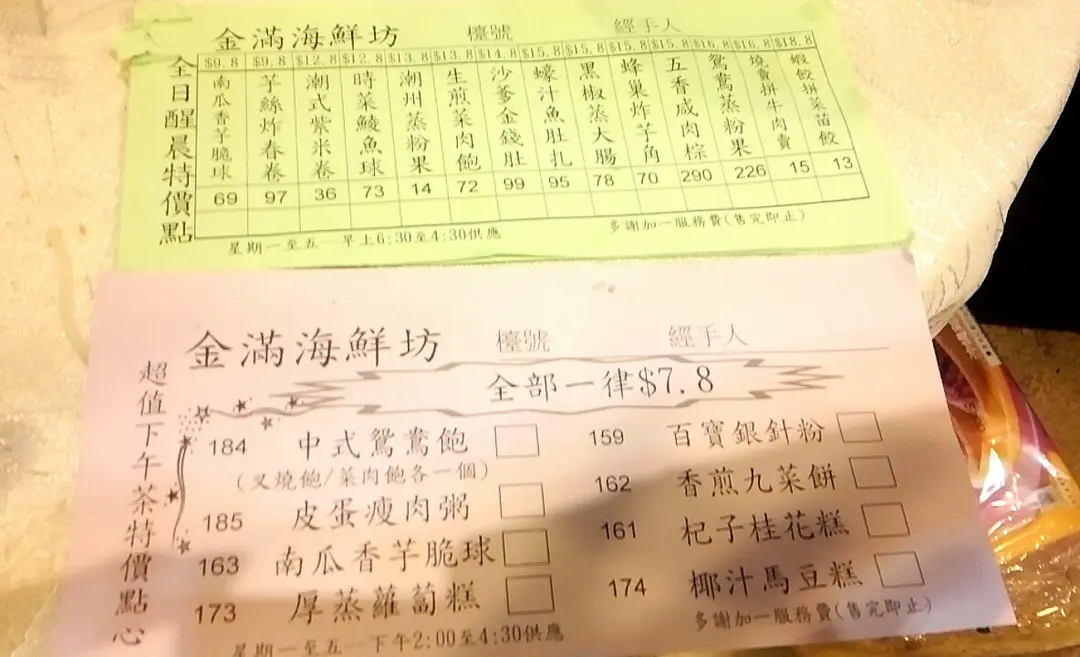 金滿海鮮坊 檯號 經手人
全日醒晨特價點
$9.8 $9.8 $12.8 $12.8 $13.8 $13.8 $14.8 $15.8 $15.8 $15.8 $15.8 $16.8 $16.8 $18.8
南瓜香芋脆球
芋絲炸春卷
潮式紫米卷
時菜鯪魚球
潮州蒸粉果
生煎菜肉飽
沙爹金錢肚
蠔汁魚肚扎
黑椒蒸大腸
蜂巢炸芋角
五香咸肉棕
鴛鴦蒸粉果
燒賣拼牛肉賣
蝦餃拼菜苗餃
69 97 36 73 14 72 99 95 78 70 290 226 15 13
星期一至五一早上6:30至4:30供應
多謝加一服務費(售完即止)
金滿海鮮坊 檯號 經手人
超值下午茶特價點心
全部一律$7.8
184 中式鴛鴦飽
(叉燒飽/菜肉飽各一個)
185 皮蛋瘦肉粥
163 南瓜香芋脆球
173 厚蒸蘿蔔糕
159 百寶銀針粉
162 香煎九菜餅
161 杞子桂花糕
174 椰汁馬豆糕
星期一至五一下午2:00至4:30供應
多謝加一服務費(售完即止)